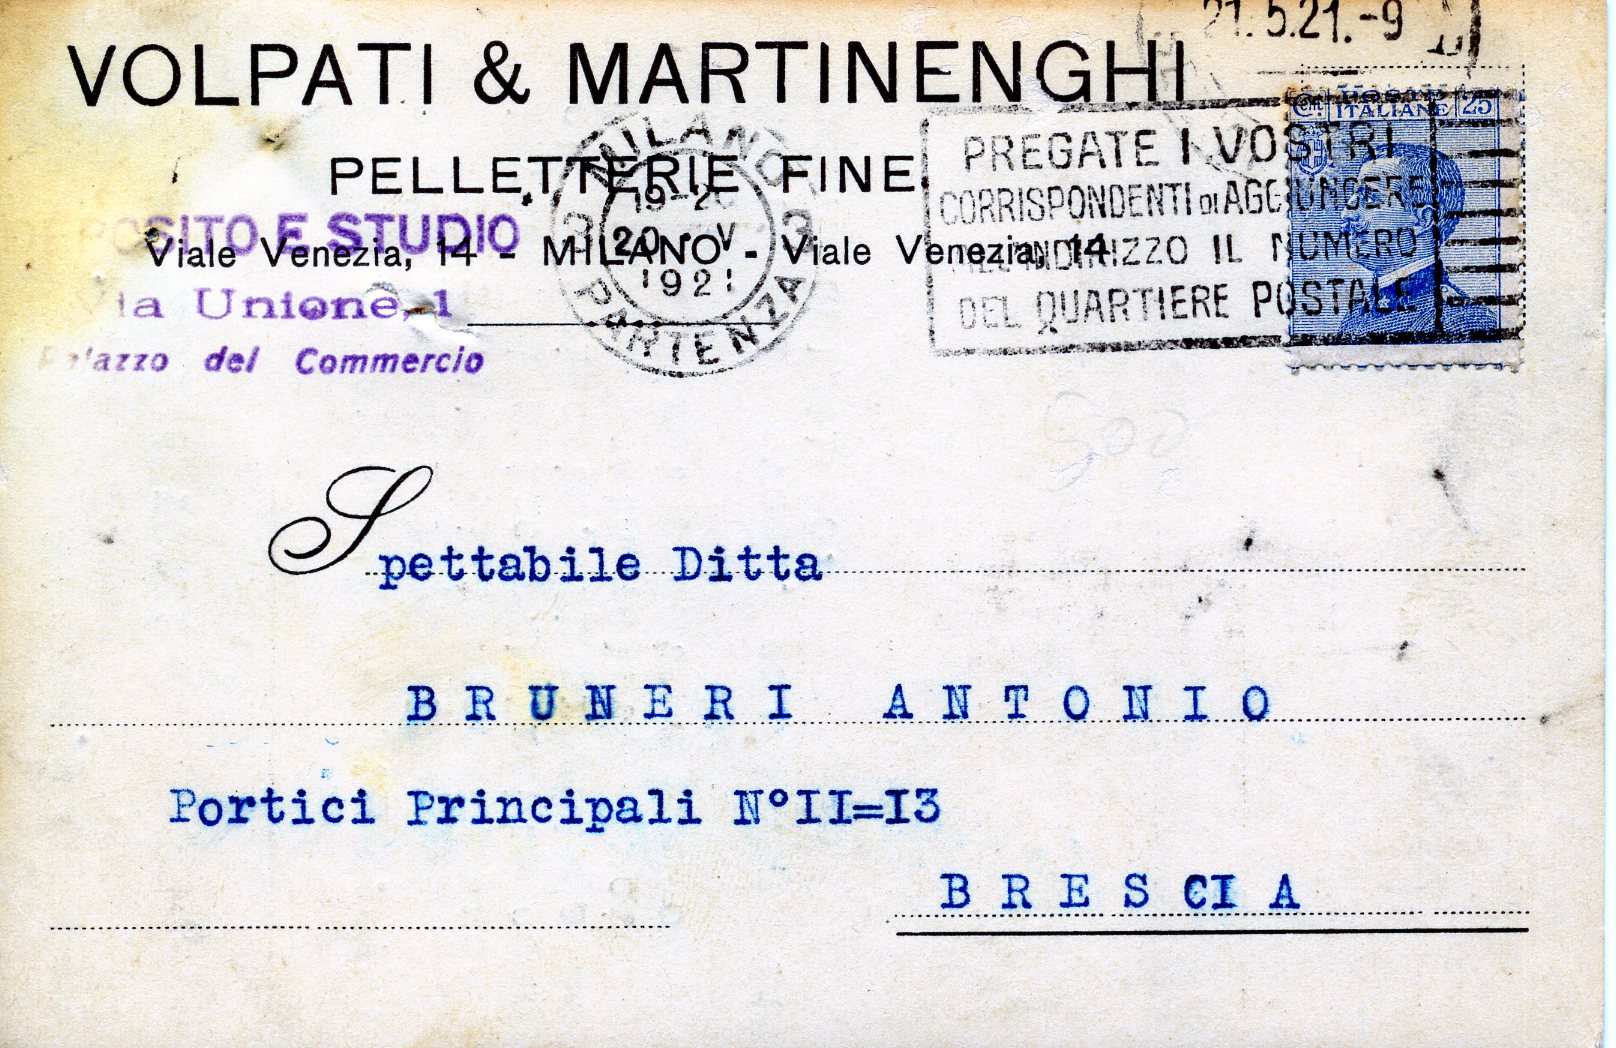 21.5.21.-9
VOLPATI & MARTINENGHI
PELLETTERIE FINE
Viale Venezia, 14 - MILANO - Viale Venezia, 14
E STUDIO
Unione, 1
del Commercio
MILANO
19-20
20 V
1921
PARTENZA
PREGATE I VOSTRI
CORRISPONDENTI DI AGGIUNGERE
ALL'INDIRIZZO IL NUMERO
DEL QUARTIERE POSTALE
Cent. POSTE ITALIANE 25
Spettabile Ditta
BRUNERI ANTONIO
Portici Principali N°II=I3
BRESCIA